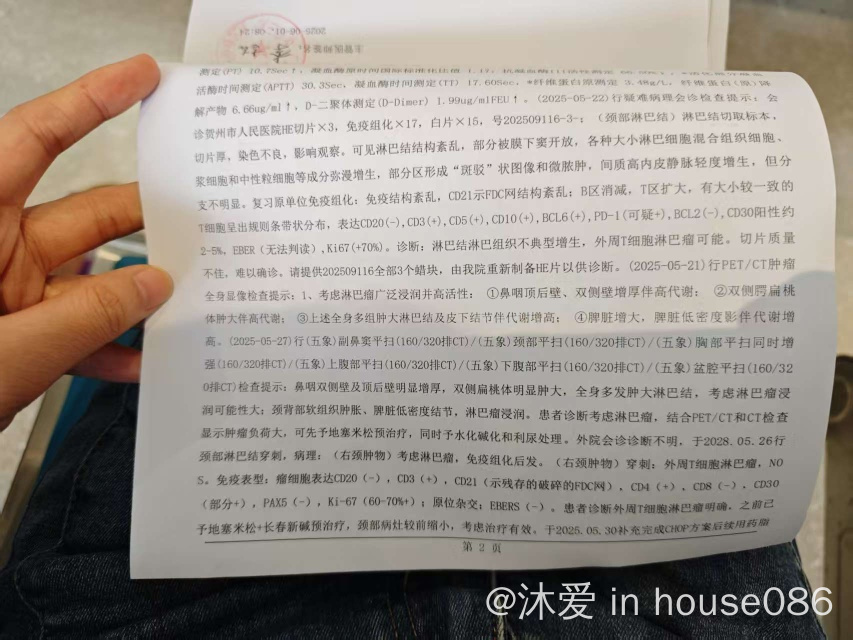 活酶时间测定(APTT) 30.3Sec, 凝血酶时间测定(TT) 17.60Sec, *纤维蛋白原测定 3.48g/L, 纤维蛋白(原)降
解产物 6.66ug/ml↑, D-二聚体测定(D-Dimer) 1.99ug/mlFEU↑。(2025-05-22)行疑难病理会诊检查提示: 会
诊贺州市人民医院HE切片×3, 免疫组化×17, 白片×15, 号202509116-3-: (颈部淋巴结) 淋巴结切取标本,
切片厚, 染色不良, 影响观察。可见淋巴结结构紊乱, 部分被膜下窦开放, 各种大小淋巴细胞混合组织细胞、
浆细胞和中性粒细胞等成分弥漫增生, 部分区形成“斑驳”状图像和微脓肿, 间质高内皮静脉轻度增生, 但分
支不明显。复习原单位免疫组化: 免疫结构紊乱, CD21示FDC网结构紊乱; B区消减, T区扩大, 有大小较一致的
T细胞呈出规则条带状分布, 表达CD20(-),CD3(+),CD5(+),CD10(+),BCL6(+),PD-1(可疑+),BCL2(-),CD30阳性约
2-5%, EBER (无法判读),Ki67(+70%)。诊断: 淋巴结淋巴组织不典型增生, 外周T细胞淋巴瘤可能。切片质量
不佳, 难以确诊。请提供202509116全部3个蜡块, 由我院重新制备HE片以供诊断。(2025-05-21)行PET/CT肿瘤
全身显像检查提示: 1、考虑淋巴瘤广泛浸润并高活性: ①鼻咽顶后壁、双侧壁增厚伴高代谢; ②双侧腭扁桃
体肿大伴高代谢; ③上述全身多组肿大淋巴结及皮下结节伴代谢增高; ④脾脏增大, 脾脏低密度影伴代谢增
高。(2025-05-27)行(五象)副鼻窦平扫(160/320排CT)/(五象)颈部平扫(160/320排CT)/(五象)胸部平扫同时增
强(160/320排CT)/(五象)上腹部平扫(160/320排CT)/(五象)下腹部平扫(160/320排CT)/(五象)盆腔平扫(160/32
0排CT)检查提示: 鼻咽双侧壁及顶后壁明显增厚, 双侧扁桃体明显肿大, 全身多发肿大淋巴结, 考虑淋巴瘤浸
润可能性大; 颈背部软组织肿胀、脾脏低密度结节, 淋巴瘤浸润。患者诊断考虑淋巴瘤, 结合PET/CT和CT检查
显示肿瘤负荷大, 可先予地塞米松预治疗, 同时予水化碱化和利尿处理。外院会诊诊断不明, 于2028.05.26行
颈部淋巴结穿刺, 病理: (右颈肿物) 考虑淋巴瘤, 免疫组化后发。(右颈肿物) 穿刺: 外周T细胞淋巴瘤, NO
S。免疫表型: 瘤细胞表达CD20 (-), CD3 (+), CD21 (示残存的破碎的FDC网), CD4 (+), CD8 (-), CD30
(部分+), PAX5 (-), Ki-67 (60-70%+); 原位杂交: EBERS (-)。患者诊断外周T细胞淋巴瘤明确, 之前已
予地塞米松+长春新碱预治疗, 颈部病灶较前缩小, 考虑治疗有效。于2025.05.30补充完成CHOP方案后续用药脂
第 2 页
@沐爱 in house086